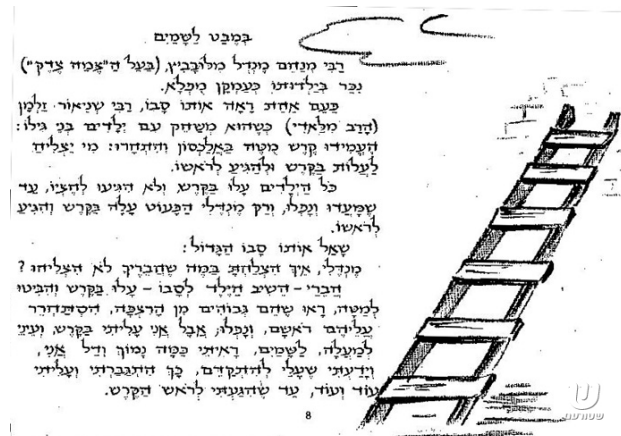 בְּמַבָּט לַשָּׁמַיִם
רַבִּי מְנַחֵם מֶנְדְּל מִלּוּבָּבִיץ, (בַּעַל הַ"צֶּמַח צֶדֶק")
נִכַּר בְּיַלְדוּתוֹ כְּעַמְקָן מֻפְלָא.
פַּעַם אַחַת רָאָה אוֹתוֹ סָבוֹ, רַבִּי שְׁנֵיאוֹר זַלְמָן
(הָרַב מִלַּאדִי) כְּשֶׁהוּא מְשַׂחֵק עִם יְלָדִים בְּנֵי גִילוֹ:
הֶעֱמִידוּ קֶרֶשׁ מֻטֶּה בַּאֲלַכְסוֹן וְהִתְחָרוּ: מִי יַצְלִיחַ
לַעֲלוֹת בַּקֶּרֶשׁ וּלְהַגִּיעַ לְרֹאשׁוֹ.
כֹּל הַיְלָדִים עָלוּ בַּקֶּרֶשׁ, וְלֹא הִגִּיעוּ לְחֶצְיוֹ, עַד
שֶׁמָּעֲדוּ וְנָפְלוּ, וְרַק מֶנְדְּלִי הַפָּעוֹט עָלָה בַּקֶּרֶשׁ וְהִגִּיעַ
לְרֹאשׁוֹ.
שָׁאַל אוֹתוֹ סָבוֹ הַגָּדוֹל:
מֶנְדְּלִי, אֵיךְ הִצְלַחְתָּ בַּמֶּה שֶׁחֲבֵרֶיךָ לֹא הִצְלִיחוּ?
חֲבֵרַי - הֵשִׁיב הַיֶּלֶד לְסָבוֹ - עָלוּ בַּקֶּרֶשׁ וְהִבִּיטוּ
לְמַטָּה, רָאוּ שֶׁהֵם גְּבוֹהִים מִן הָרִצְפָּה, הִסְתַּחְרֵר
עֲלֵיהֶם רֹאשָׁם, וְנָפְלוּ, אֲבָל אֲנִי עָלִיתִי בַּקֶּרֶשׁ, וְעֵינַי
לְמַעְלָה, לַשָּׁמַיִם, רָאִיתִי כַּמָּה נָמוּךְ וְדַל אֲנִי,
וְיָדַעְתִּי שֶׁעָלַי לְהִתְקַדֵּם, כָּךְ הִתְגַּבַּרְתִּי וְעָלִיתִי
עוֹד וָעוֹד, עַד שֶׁהִגַּעְתִּי לְרֹאשׁ הַקֶּרֶשׁ.
8
ש
שטורעם